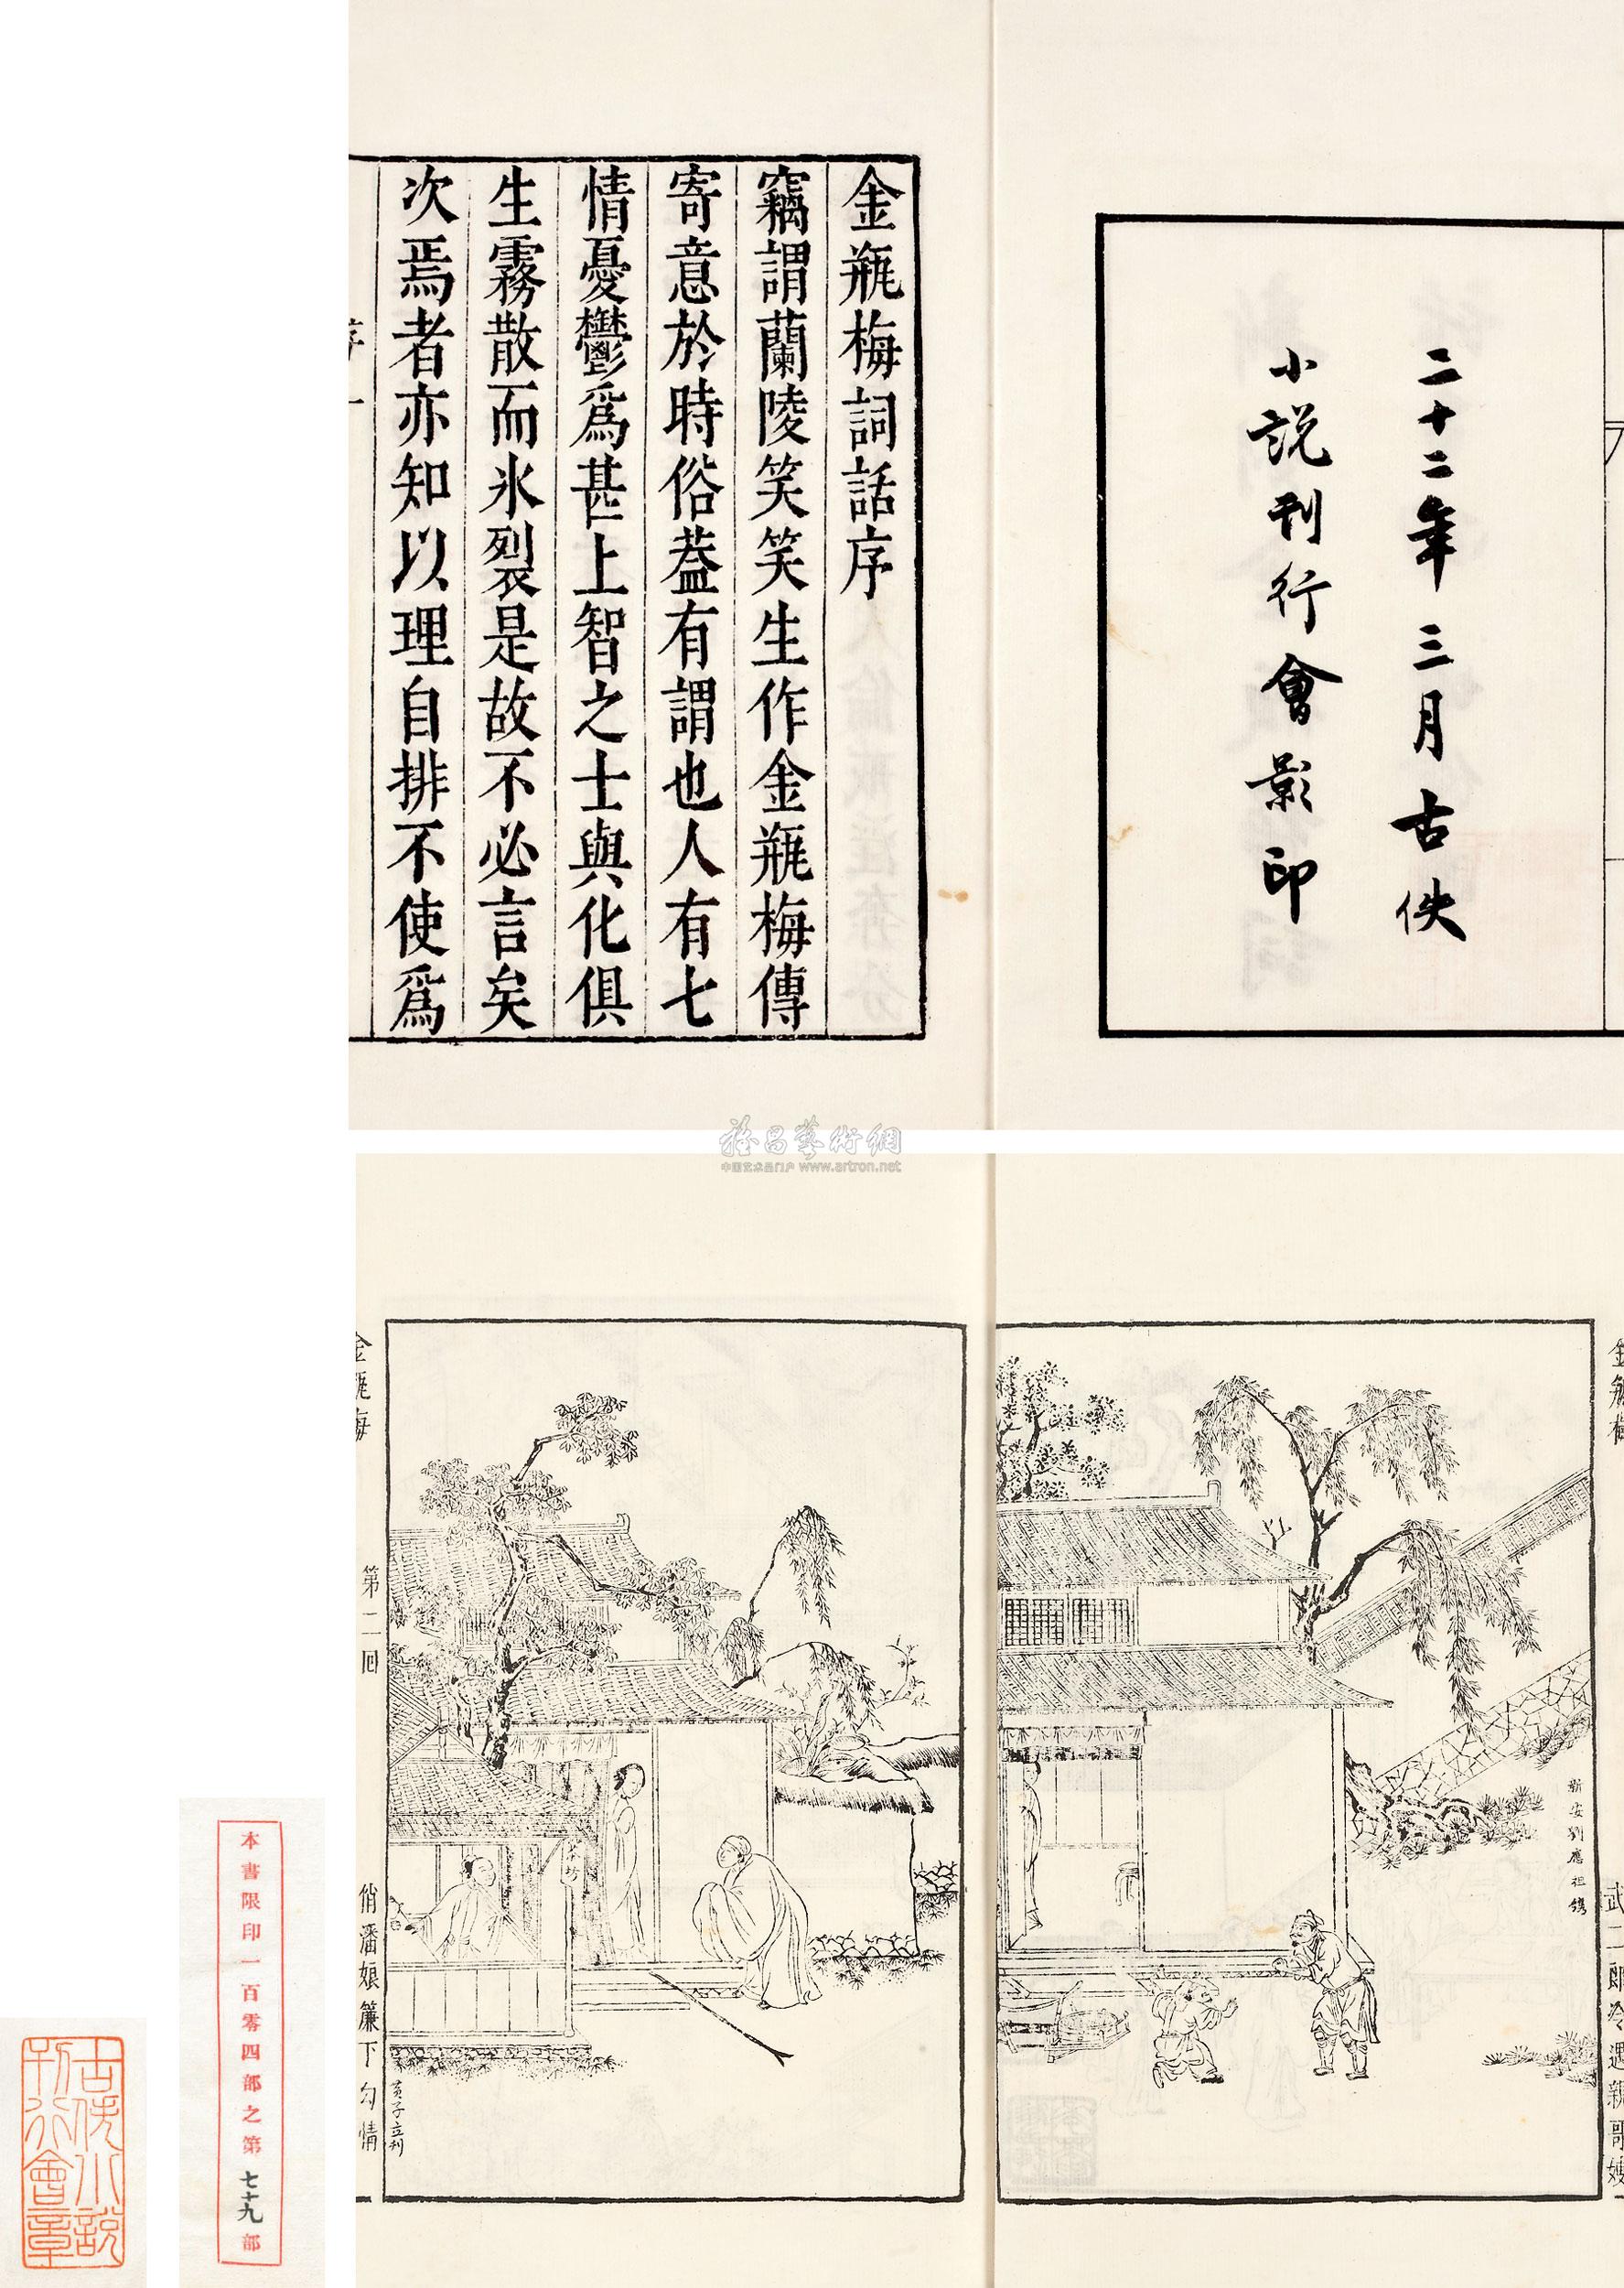 二十二年三月古佚
小說刊行會影印
金瓶梅詞話序
竊謂蘭陵笑笑生作金瓶梅傳
寄意於時俗蓋有謂也人有七
情憂鬱爲甚上智之士與化俱
生霧散而氷裂是故不必言矣
次焉者亦知以理自排不使爲
序一
雅昌藝術網
中国艺术品门户 www.artron.net
金瓶梅
武二郎冷遇親哥嫂
新安劉應祖鐫
金瓶梅 第二回 俏潘娘簾下勾情
黃子立刊
本書限印一百零四部之第七十九部
古佚小說
刊行會章